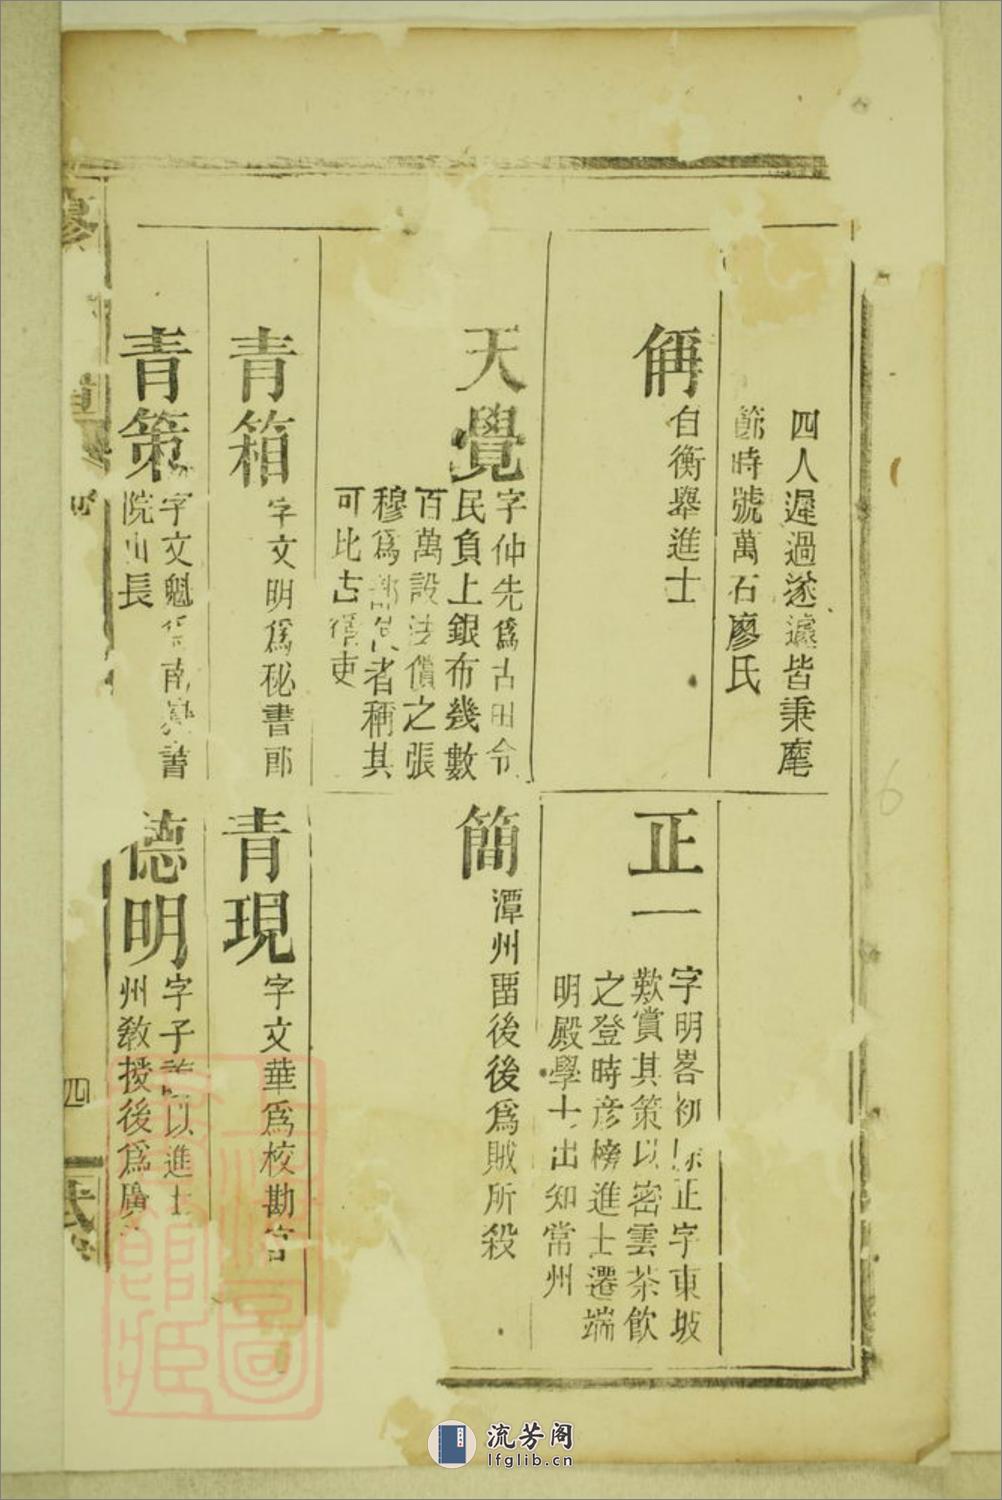 四人遲過遂遽皆秉麾
節時號萬石廖氏
偁
自衡舉進士
正一
字明畧初 正字東坡
歎賞其策以密雲茶飲
之登時彥榜進士遷端
明殿學士出知常州
天覺
字仲先爲古田令
民負上銀布幾數
百萬設法償之張
穆爲 者稱其
可比古循吏
簡
潭州畱後後爲賊所殺
青箱
字文明爲秘書郎
青現
字文華爲校勘官
青策
字文魁 南 書
院山長
德明
字子 以進士
州敎授後爲廣
廖
四
氏
流芳阁
lfglib.cn